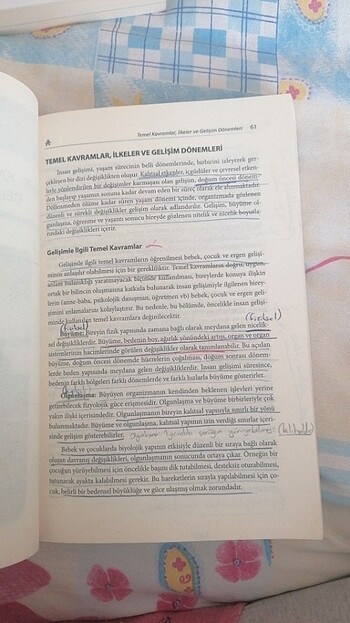 Temel Kavramlar, İlkeler ve Gelişim Dönemleri 61
TEMEL KAVRAMLAR, İLKELER VE GELİŞİM DÖNEMLERİ
İnsan gelişimi, yaşam sürecinin belli dönemlerinde, birbirini izleyerek ger-
çekleşen bir dizi değişiklikten oluşur. Kalıtsal etkenler, içgüdüler ve çevresel etken-
lerle yönlendirilen bir değişimler karmaşası olan gelişim, doğum öncesi dönem-
den başlayıp yaşamın sonuna kadar devam eden bir süreç olarak ele alınmaktadır.
Döllenmeden ölüme kadar süren yaşam dönemi içinde, organizmada gözlenen
düzenli ve sürekli değişiklikler gelişim olarak adlandırılır. Gelişim, büyüme ol-
gunlaşma, öğrenme ve yaşantı sonucu bireyde gözlenen nitelik ve nicelik boyutla-
rındaki değişiklikleri içerir.
Gelişimle İlgili Temel Kavramlar
Gelişimle ilgili temel kavramların öğrenilmesi bebek, çocuk ve ergen gelişi-
minin anlaşılır olabilmesi için bir gerekliliktir. Temel kavramların doğru, uygun,
anlam bulanıklığı yaratmayacak biçimde kullanılması, bireylerde konuya ilişkin
ortak bir bilincin oluşmasına katkıda bulunarak insan gelişimiyle ilgilenen birey-
lerin (anne-baba, psikolojik danışman, öğretmen vb) bebek, çocuk ve ergen geli-
şimini anlamalarını kolaylaştırır. Bu nedenle, bu bölümde, öncelikle insan gelişi-
minde kullanılan temel kavramlara değinilecektir.
Büyüme: Bireyin fizik yapısında zamana bağlı olarak meydana gelen nicelik-
sel değişikliklerdir. Büyüme, bedenin boy, ağırlık yönündeki artışı, organ ve organ
sistemlerinin hacimlerinde görülen değişiklikler olarak tanımlanabilir. Bu açıdan
büyüme, doğum öncesi dönemde hücrelerin çoğalması, doğum sonrası dönem-
lerde beden yapısında meydana gelen değişikliklerdir. İnsan gelişimi süresince,
bedenin farklı bölgeleri farklı dönemlerde ve farklı hızlarla büyüme gösterirler.
Olgunlaşma: Büyüyen organizmanın kendinden beklenen işlevleri yerine
getirebilecek fizyolojik güce erişmesidir. Olgunlaşma ve büyüme birbirleriyle çok
yakın ilişki içerisindedir. Olgunlaşmanın bireyin kalıtsal yapısıyla sınırlı bir yönü
bulunmaktadır. Büyüme ve olgunlaşma, kalıtsal yapının izin verdiği sınırlar içeri-
sinde gelişim gösterebilirler.
Bebek ve çocuklarda biyolojik yapının etkisiyle düzenli bir sıraya bağlı olarak
oluşan davranış değişiklikleri, olgunlaşmanın sonucunda ortaya çıkar. Örneğin bir
çocuğun yürüyebilmesi için öncelikle başını dik tutabilmesi, desteksiz oturabilmesi,
tutunarak ayakta kalabilmesi gerekir. Bu hareketlerin sırayla yapılabilmesi için ço-
cuk, belirli bir bedensel büyüklüğe ve güce ulaşmış olmak zorundadır.